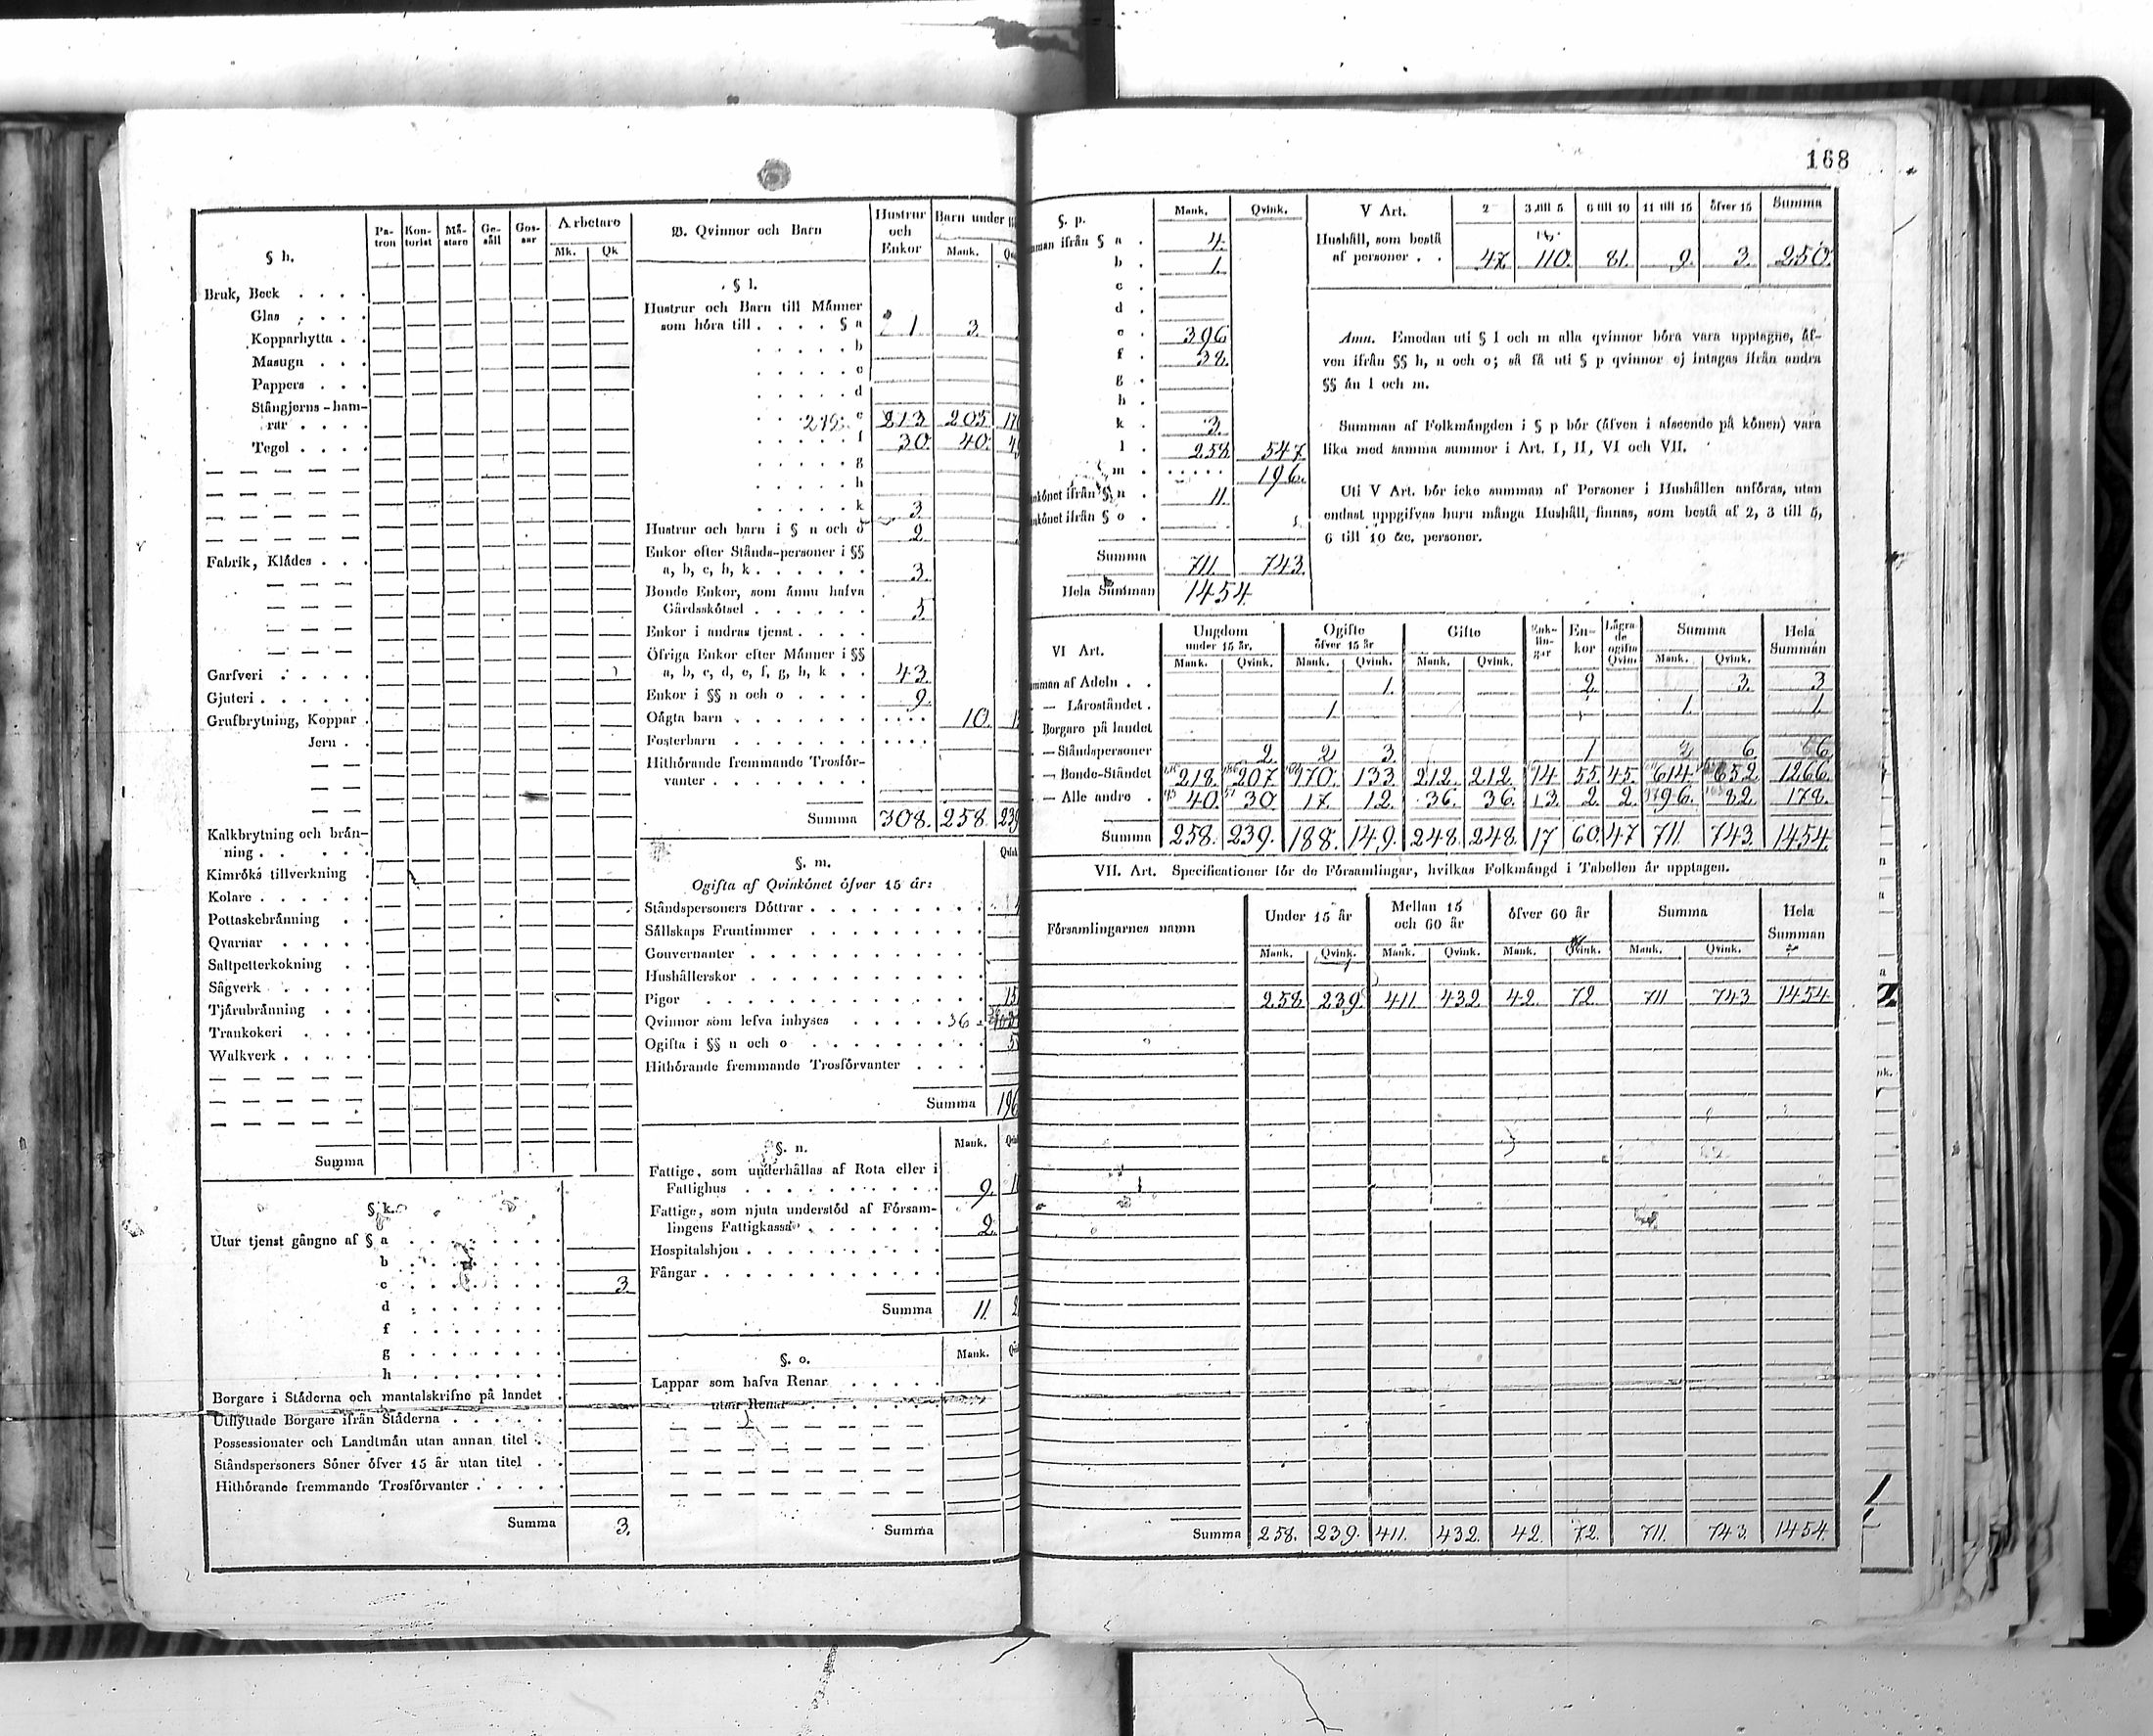 168
§ h.
Pa-
tron
Kon-
torist
Mä-
stare
Ge-
säll
Gos-
sar
Arbetare
Mk. Qk
Bruk, Beck . . . .
Glas . . . .
Kopparhytta . .
Masugn . . .
Pappers . . .
Stångjerns-ham-
rar . . . .
Tegel . . . .
Fabrik, Klädes . . .
Garfveri . . . . .
Gjuteri . . . . .
Grufbrytning, Koppar .
Jern . .
Kalkbrytning och brån-
ning . . . . .
Kimröks tillverkning .
Kolare . . . . . .
Pottaskebränning . .
Qvarnar . . . . .
Saltpetterkokning . .
Sågverk . . . . .
Tjärubränning . . .
Trankokeri . . . .
Walkverk . . . . .
Summa
§ k.
Utur tjenst gångne af § a . . . . . . . .
b . . . . . . . .
c . . . . . . . . 3.
d . . . . . . . .
f . . . . . . . .
g . . . . . . . .
h . . . . . . . .
Borgare i Städerna och mantalskrifne på landet .
Utflyttade Borgare ifrån Städerna . . . . . .
Possessionater och Landtmän utan annan titel . .
Ståndspersoners Söner öfver 15 år utan titel . .
Hithörande fremmande Trosförvanter . . . . .
Summa 3.
D. Qvinnor och Barn
Hustrur
och
Enkor
Barn under
Mank.
§ l.
Hustrur och Barn till Männer
som höra till . . . . § a 1 3
. . . . . b
. . . . . c
. . . . . d
. . e 213 205
. . . . . f 30. 40.
. . . . . g
. . . . . h
. . . . . k 3.
Hustrur och barn i § n och o 2
Enkor efter Stånds-personer i §§
a, b, c, h, k . . . . . . 3.
Bonde Enkor, som ännu hafva
Gårdsskötsel . . . . . . 5
Enkor i andras tjenst . . . .
Öfriga Enkor efter Männer i §§
a, b, c, d, e, f, g, h, k . . 43.
Enkor i §§ n och o . . . . 9.
Oägta barn . . . . . . . . . . . 10.
Fosterbarn . . . . . . . . . . .
Hithörande fremmande Trosför-
vanter . . . . . . . .
Summa 308. 258. 239
§. m.
Ogifta af Qvinkönet öfver 15 år:
Ståndspersoners Döttrar . . . . . . . . .
Sällskaps Fruntimmer . . . . . . . . .
Gouvernanter . . . . . . . . . . . .
Hushållerskor . . . . . . . . . . . .
Pigor . . . . . . . . . . . . . .
Qvinnor som lefva inhyses . . . . . 36
Ogifta i §§ n och o . . . . . . . . . 5
Hithörande fremmande Trosförvanter . . . .
Summa 196
§. n.
Mank.
Fattige, som underhållas af Rota eller i
Fattighus . . . . . . . . . . 9.
Fattige, som njuta understöd af Försam-
lingens Fattigkassa . . . . . . . 2.
Hospitalshjon . . . . . . . . . .
Fångar . . . . . . . . . . . .
Summa 11. 2
§. o.
Mank.
Lappar som hafva Renar . . . . .
utan Renar . . . . . . .
Summa
§. p.
Mank. Qvink.
ifrån § a . 4.
b . 1.
c .
d .
e . 396
f . 38.
g .
h .
k . 3.
l . 258 547
m . . . . . . 196.
ifrån § n . 11.
ifrån § o .
Summa 711. 743.
Hela Summan 1454.
V Art. 2 3 till 5 6 till 10 11 till 15 öfver 15 Summa
Hushåll, som bestå
af personer . . 47 110. 81. 9. 3. 250.
Anm. Emedan uti § l och m alla qvinnor böra vara upptagne, äf-
ven ifrån §§ h, n och o; så få uti § p qvinnor ej intagas ifrån andra
§§ än l och m.
Summan af Folkmängden i § p bör (äfven i afseende på könen) vara
lika med samma summor i Art. I, II, VI och VII.
Uti V Art. bör icke summan af Personer i Hushållen anföras, utan
endast uppgifvas huru många Hushåll, finnas, som bestå af 2, 3 till 5,
6 till 10 &c. personer.
VI Art.
Ungdom
under 15 år.
Ogifte
öfver 15 år
Gifte
Enk-
lin-
gar
En-
kor
Lägra-
de
ogifta
Qvin.
Summa
Hela
Summan
Mank. Qvink. Mank. Qvink. Mank. Qvink. Mank. Qvink.
af Adeln . . 1. 2 3. 3
— Läroståndet . 1 1. 1.
Borgare på landet
— Ståndspersoner 2 2 3. 1 2 6 6
— Bonde-Ståndet 218. 207 170. 133 212. 212. 14 55 45. 614 652 1266.
— Alle andre . 40. 30. 17. 12. 36. 36. 3. 2 2. 96. 82. 178.
Summa 258. 239. 188. 149. 248. 248. 17 60. 47 711. 743. 1454.
VII. Art. Specificationer för de Församlingar, hvilkas Folkmängd i Tabellen är upptagen.
Församlingarnes namn
Under 15 år
Mellan 15
och 60 år
öfver 60 år
Summa
Hela
Summan
Mank. Qvink. Mank. Qvink. Mank. Qvink. Mank. Qvink.
258. 239. 411. 432. 42. 72. 711 743 1454
Summa 258. 239. 411. 432. 42. 72. 711. 743. 1454.